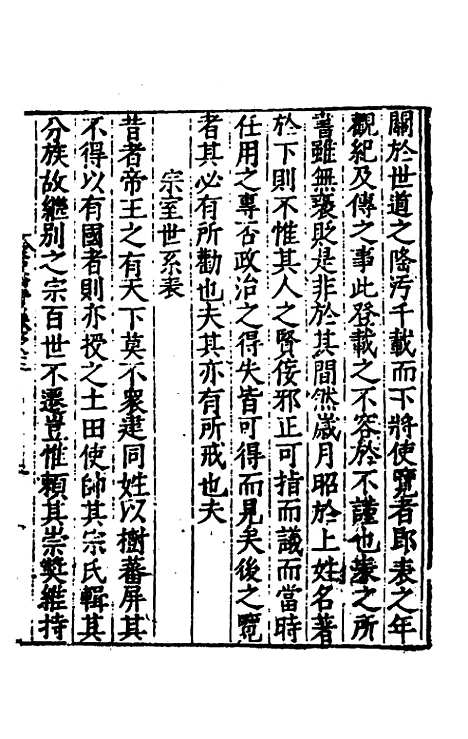 關於世道之隆汚千載而下將使覽者郎表之年
觀紀及傳之事此登載之不容於不謹也表之所
書雖無褒貶是非於其間然歲月昭於上姓名著
於下則不惟其人之賢佞邪正可指而議而當時
任用之專否政治之得失皆可得而見矣後之覽
者其必有所勸也夫其亦有所戒也夫
宗室世系表
昔者帝王之有天下莫不衆建同姓以樹蕃屏其
不得以有國者則亦授之土田使師其宗氏輯其
分族故繼別之宗百世不遷豈惟賴其崇奬維持